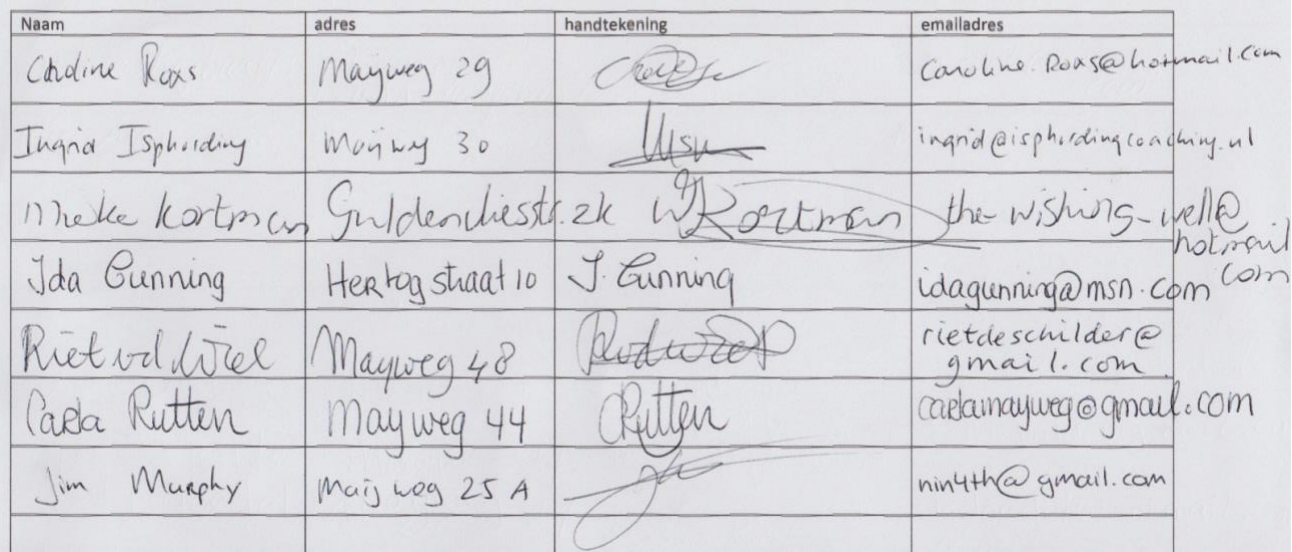 Naam adres handtekening emailadres
Caroline Roxs Mayweg 29 Caroline.Roxs@hotmail.com
Ingrid Isphording Maijweg 30 ingrid@isphordingcoaching.nl
Mieke Kortman 2k WKortman the-wishing-well@
hotmail
com
Ida Gunning Hertogstraat 10 I. Gunning idagunning@msn.com
Riet vd Wiel Mayweg 48 rietdeschilder@
gmail.com
Carla Rutten Mayweg 44 CRutten carlamayweg@gmail.com
Jim Murphy Maijweg 25 A nin4th@gmail.com